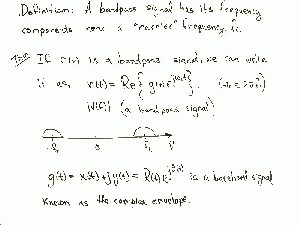 Definition: A bandpass signal has its frequency
components near a "carrier" frequency, fc.
Thm If v(t) is a bandpass signal, we can write
it as, v(t) = Re{ g(t) e^{jωct} }. (ωc = 2πfc)
|V(f)| (a bandpass signal)
-fc 0 fc f
g(t) = x(t) + j y(t) = R(t) e^{jθ(t)} is a baseband signal
known as the complex envelope.